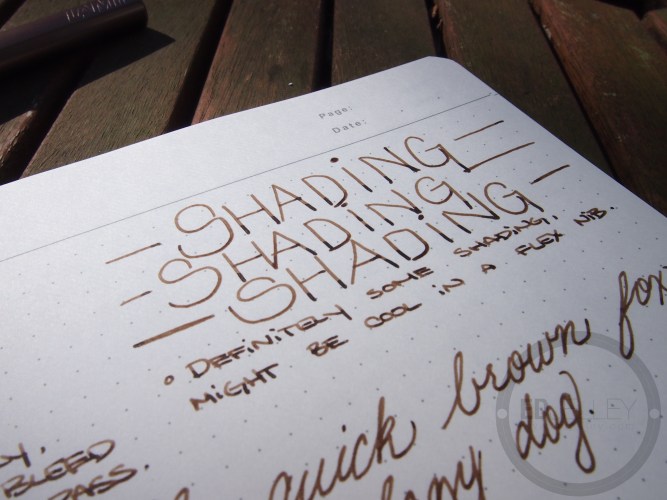 Page:
Date:
SHADING
SHADING,
SHADING
DEFINITELY SOME SHADING,
MIGHT BE COOL IN A FLEX NIB.
quick brown fox
dog.
BLEED
PASS.